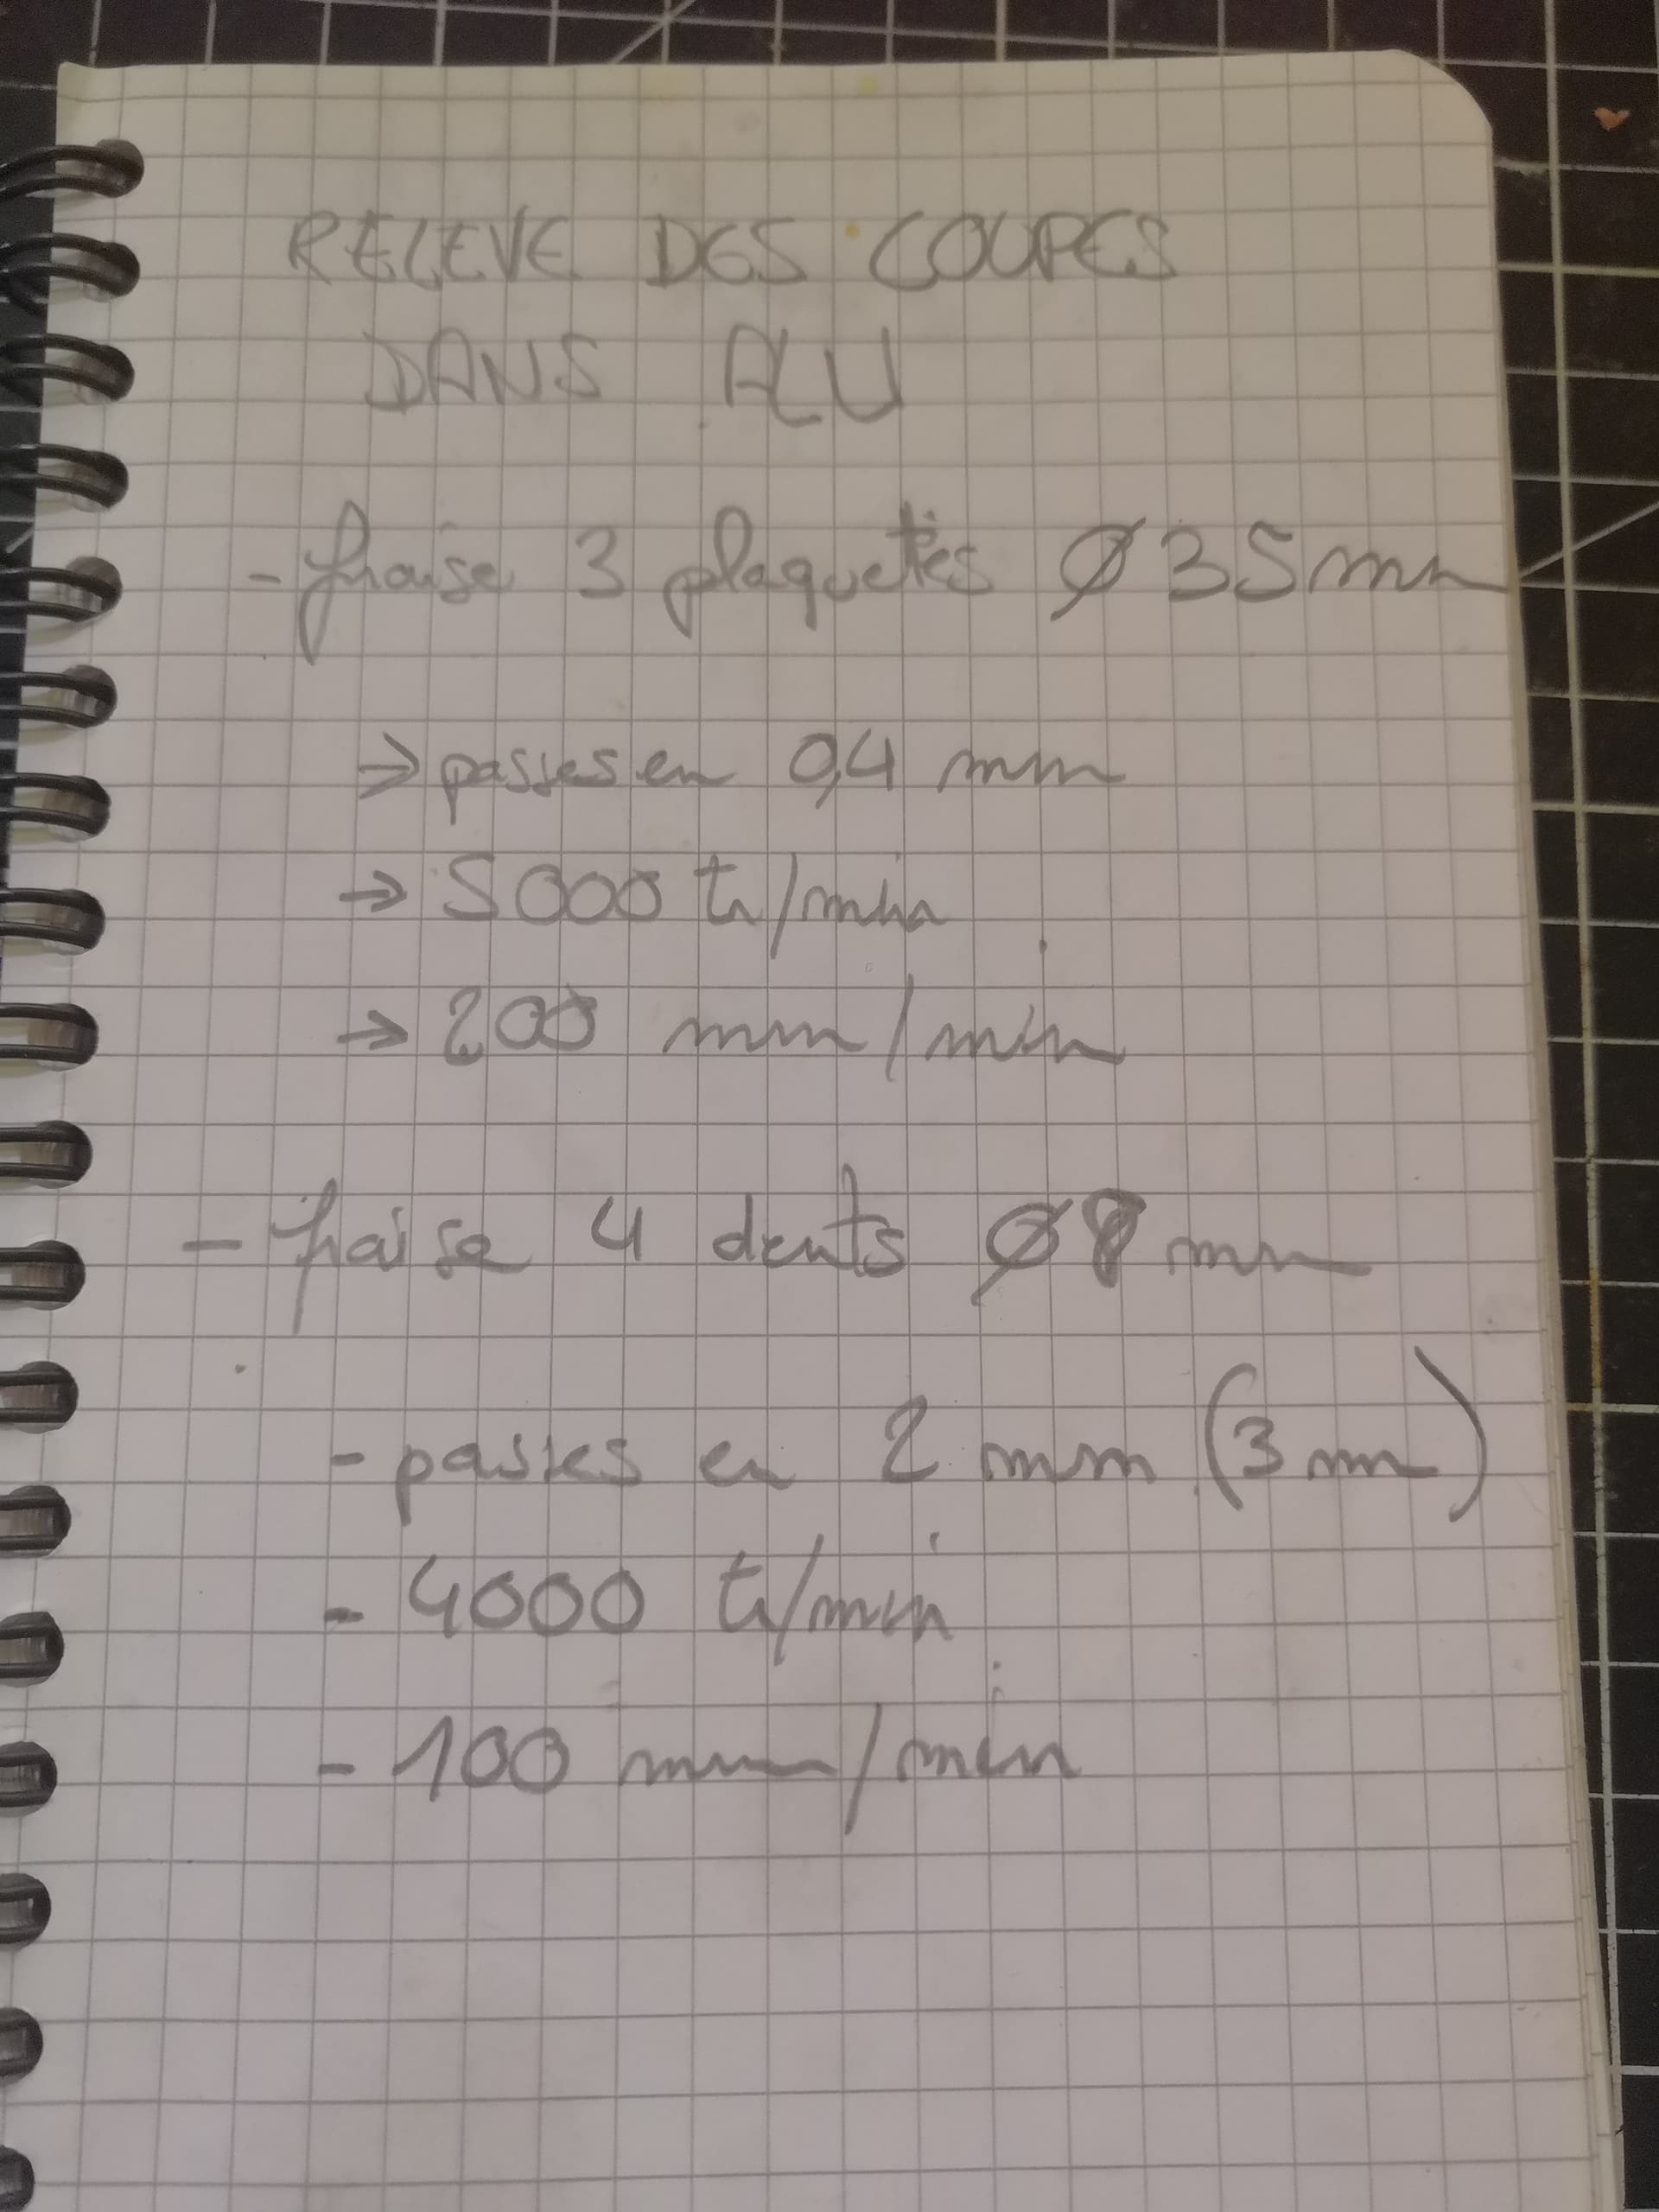 RELEVE DES COUPES
DANS ALU
- fraise 3 plaquettes Ø 35mm
→ passes en 0,4 mm
→ 5000 tr/min
→ 200 mm/min
- fraise 4 dents Ø 8 mm
- passes en 2 mm (3mm)
- 4000 tr/min
- 100 mm/min